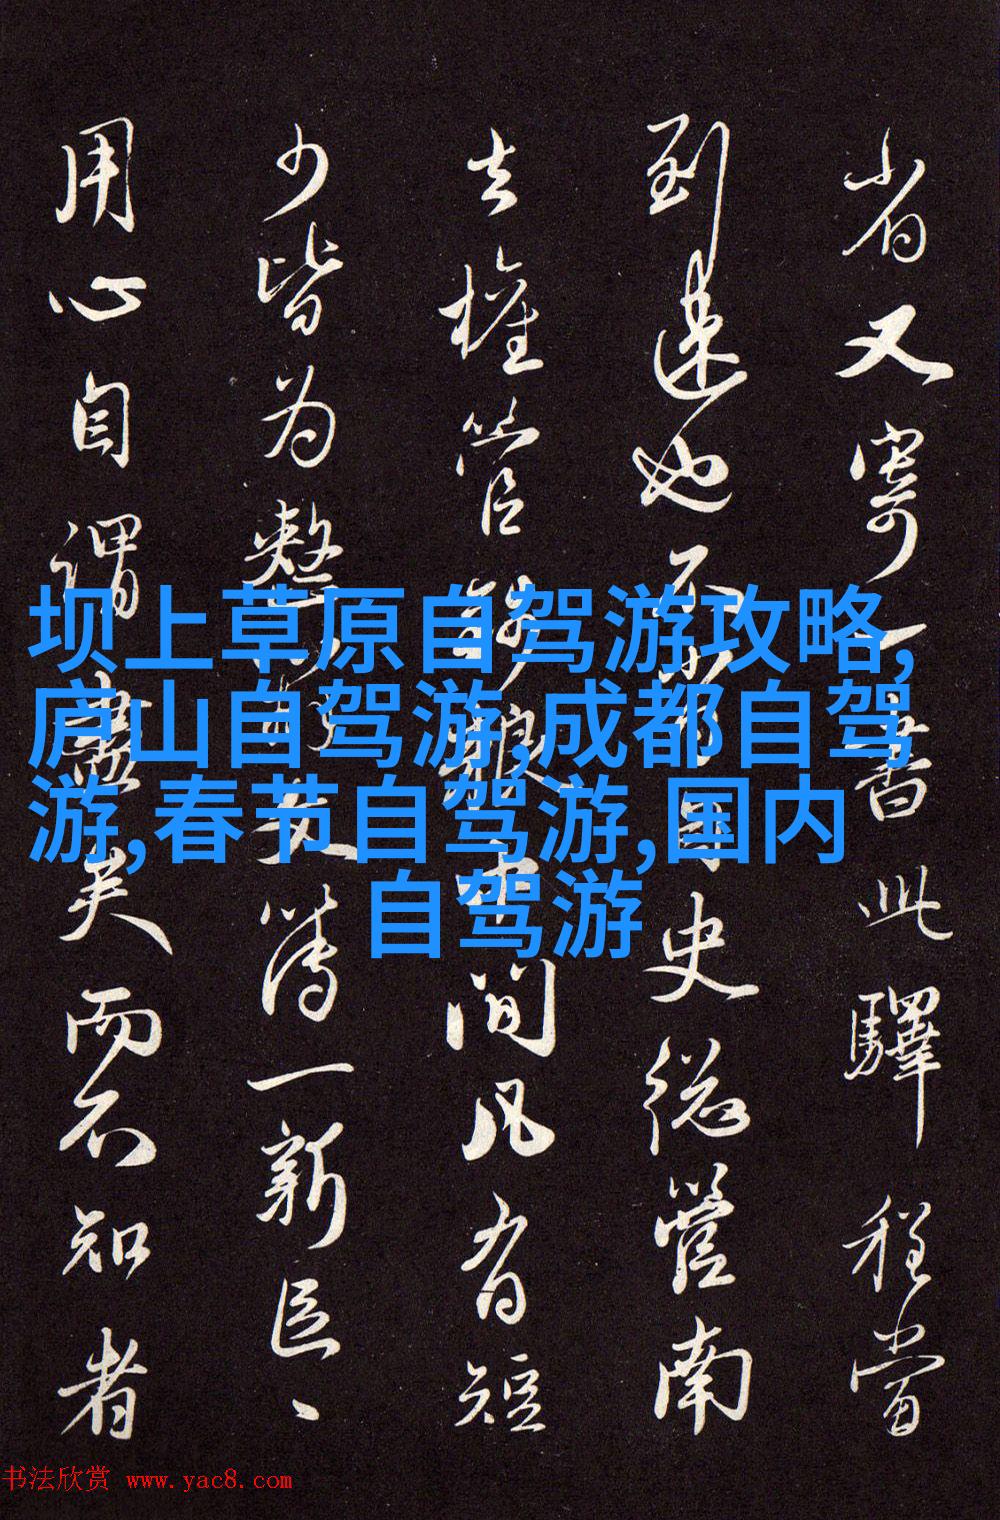 省又寄一書此驛程當
到速也不
史總管南
去權管
間凡有短
少皆为整
一新臣、
用心自謂盡矣而不知者
坝上草原自驾游攻略,
庐山自驾游,成都自驾
游,春节自驾游,国内
自驾游
书法欣赏 www.yac8.com